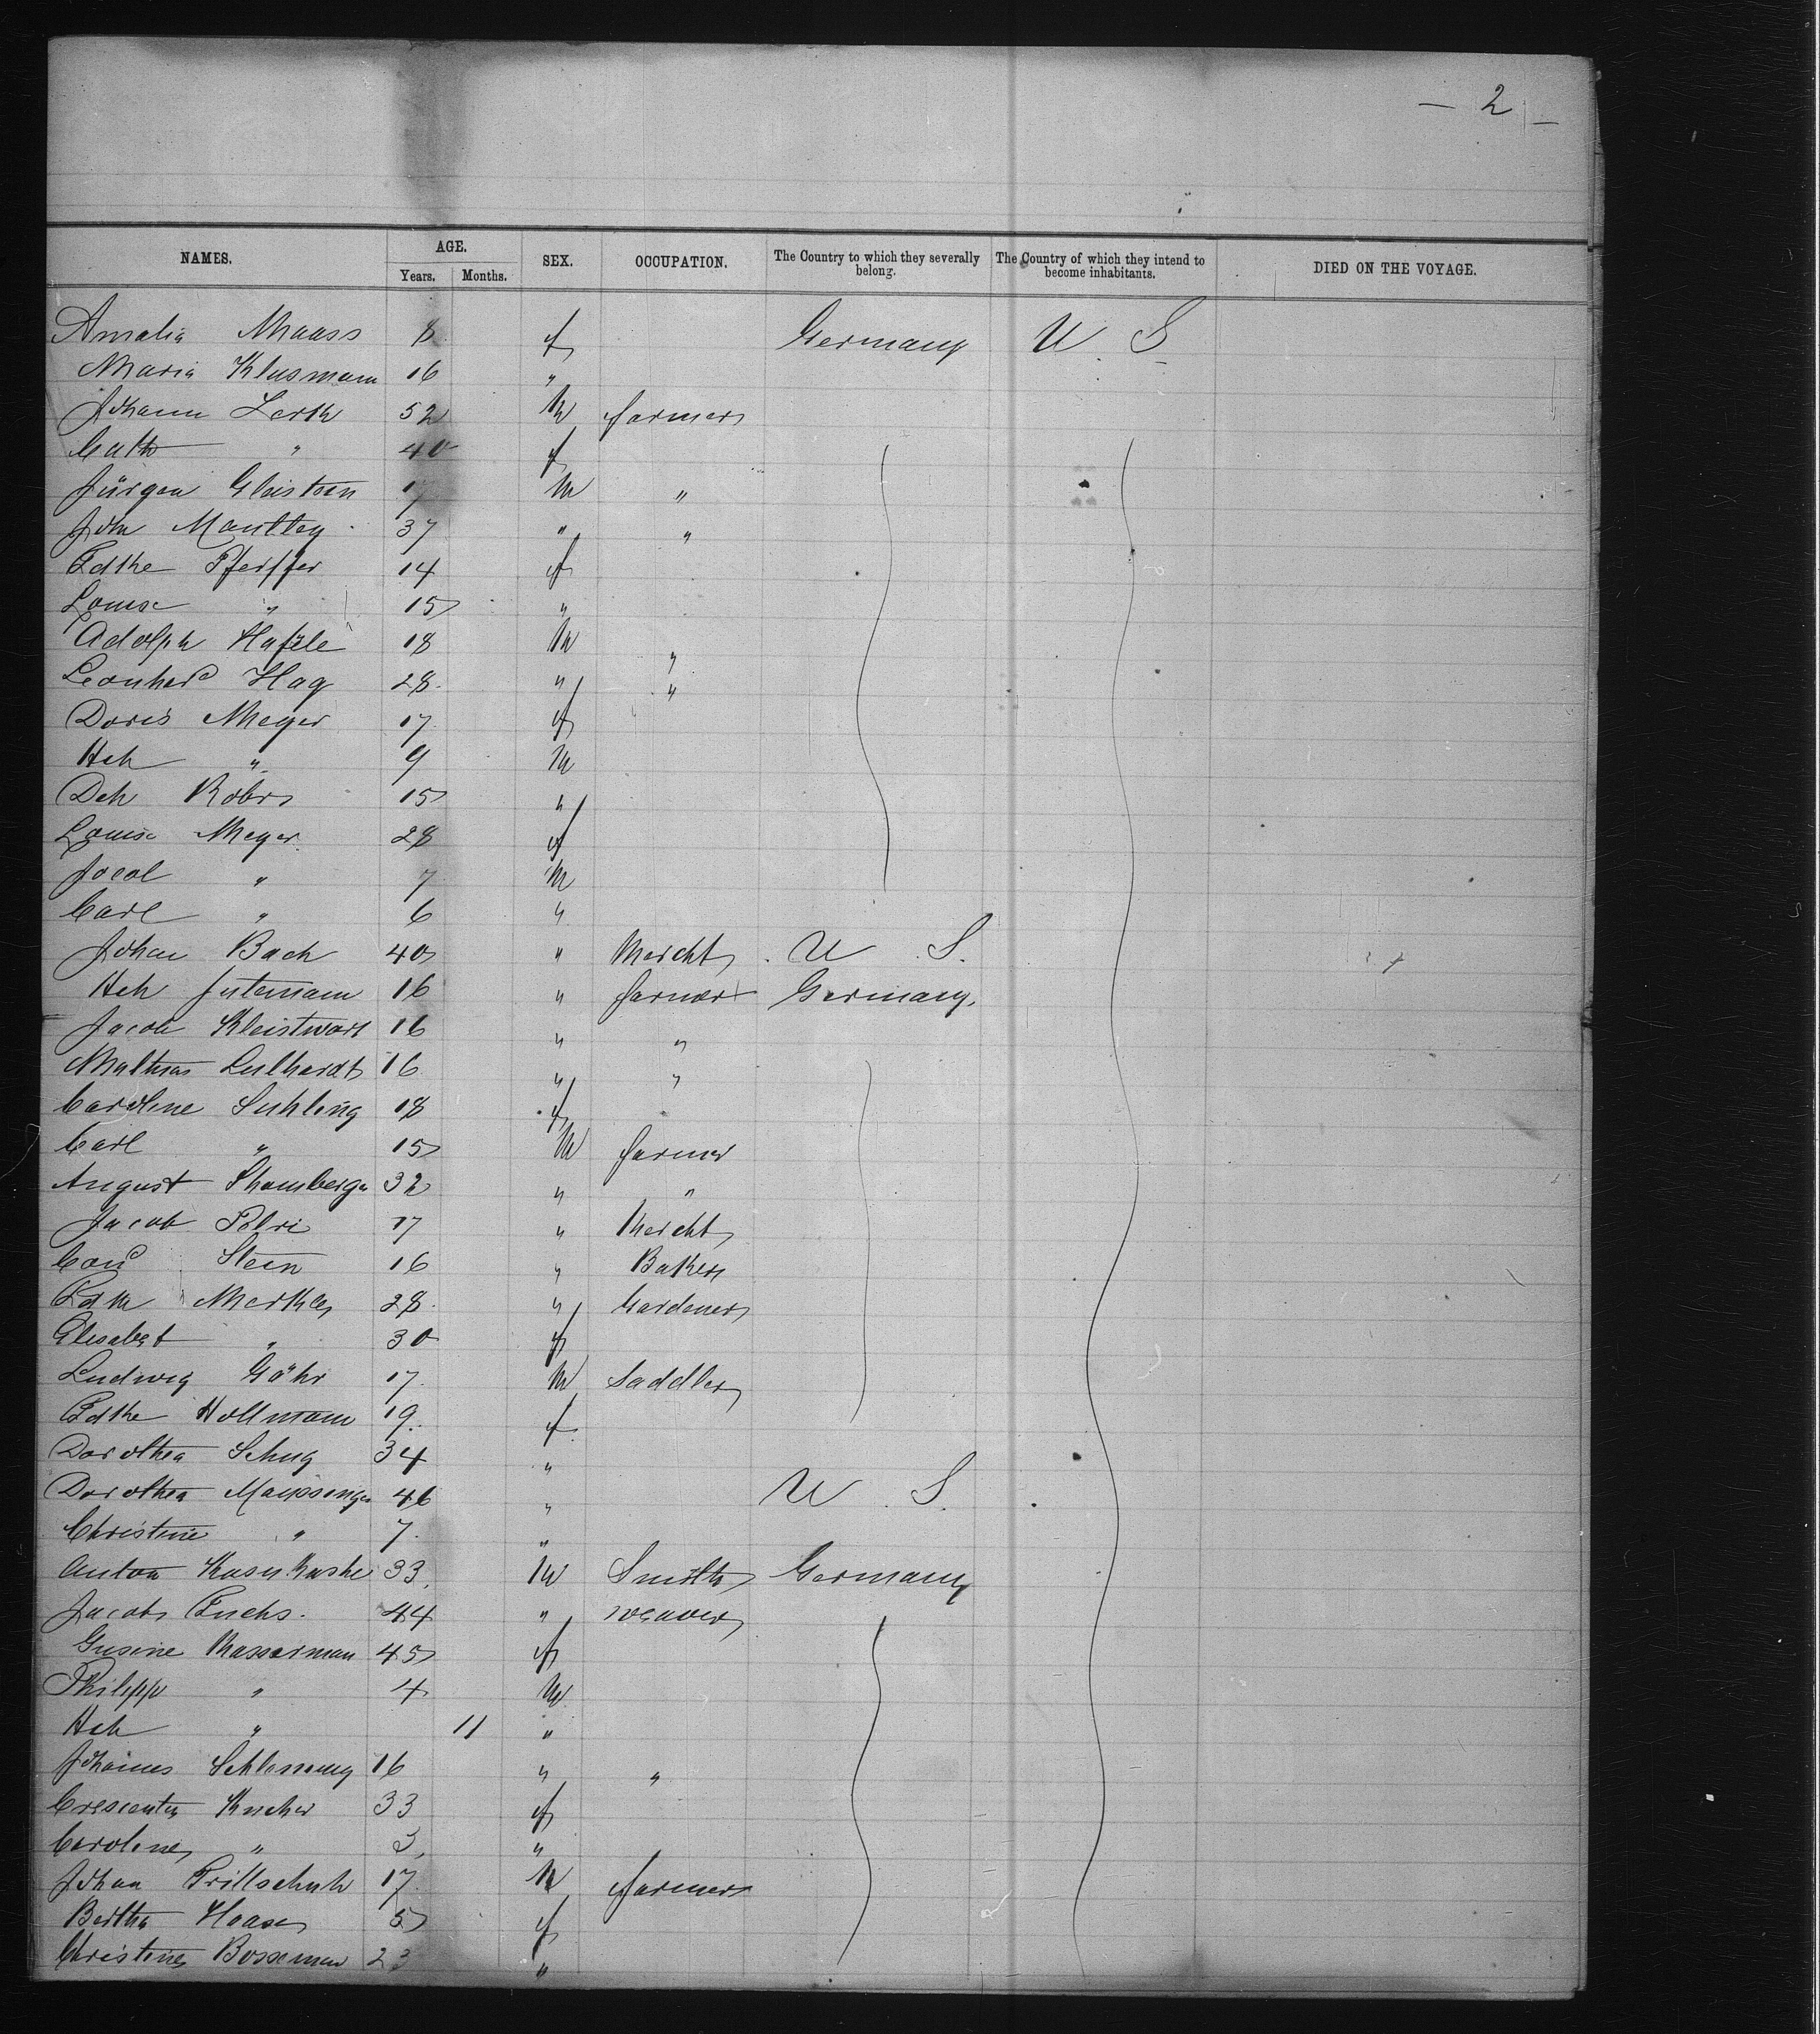 — 2 —
NAMES. AGE. Years. Months. SEX. OCCUPATION. The Country to which they severally belong. The Country of which they intend to become inhabitants. DIED ON THE VOYAGE.
Amalia Maass 8 f Germany U. S.
Maria Klusmann 16 "
Johann Lerth 52 M farmer
Cath " 40 f
Jürgen 17 M "
John Manttey 37 " "
Edthe Pfeiffer 14 f
Louise " 15 "
Adolph Hafele 18 M "
Leonhard Hag 28 " "
Doris Meyer 17 f
Hch " 9 M
Dch Röbrs 15 "
Louise Meyer 28 f
Jocob " 7 M
Carl " 6 "
Johan Bach 40 " Mercht U S.
Hch 16 " farmer Germany.
Jacob Kleistwort 16 " "
Mathias 16 " "
Caroline Suhling 18 f
Carl " 15 M farmer
August Shomberger 32 " "
Jacob Petri 17 " Mercht
Stein 16 " Baker
Merkle 28 " Gardener
Elisabet " 30 f
Ludwig Göhr 17 M Saddler
Edthe Hollmann 19. f
Dorothea Schug 34 "
Dorothea 46 " U S.
Christine " 7. "
Anton 33 M Smith Germany
Jacob Fuchs. 44 " weaver
Wasserman 45 f
Philipp " 4 M
Hch " 11 "
Johannes 16 " "
Crescentia Kucher 33 f
Caroline " 3 "
Johan Trittschuh 17 M farmer
Bertha Haase 5 f
Christine Bosseman 23 "